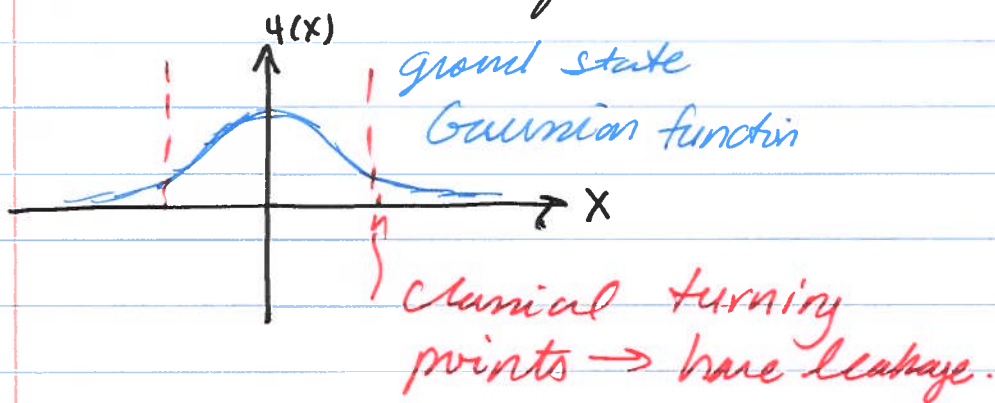 ψ(x)
ground state
Gaussian function
x
classical turning
points → have leakage.